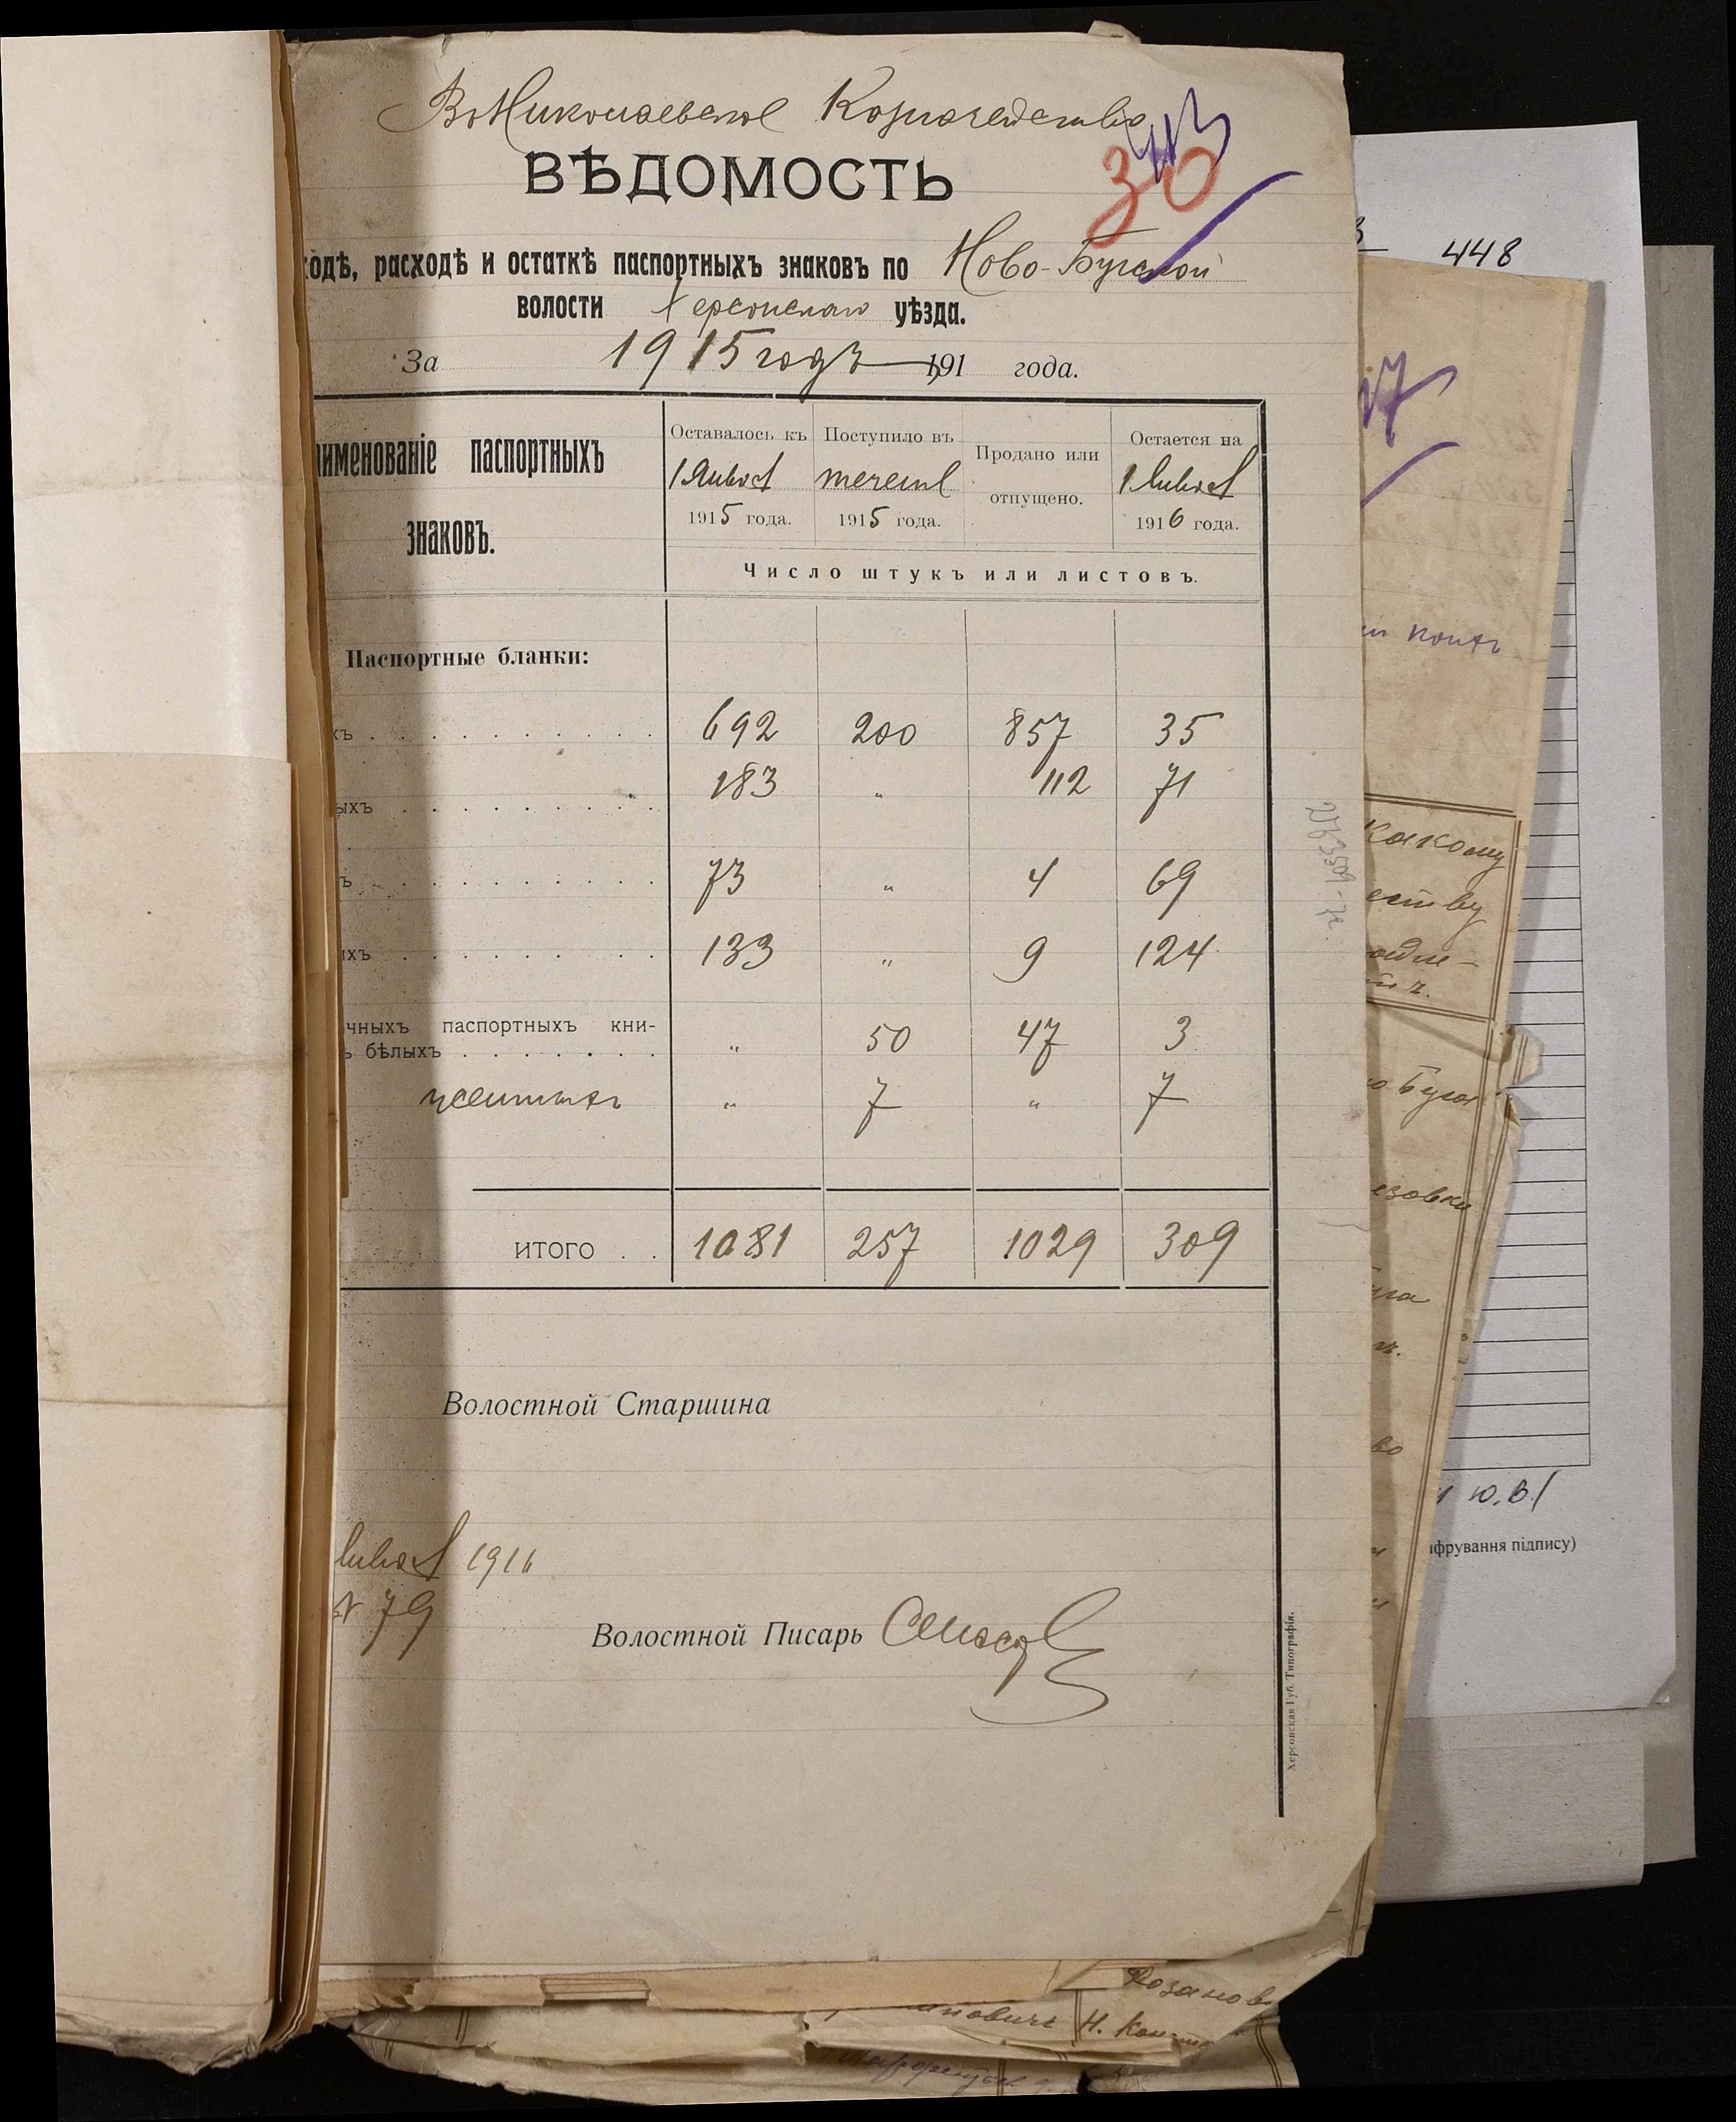 Въ Николаевское Казначейство
ВѢДОМОСТЬ
30
одѣ, расходѣ и остаткѣ паспортныхъ знаковъ по Ново-Бугской
волости Херсонскаго уѣзда.
За 1915 годъ 191 года.
аименованіе паспортныхъ знаковъ.
Оставалось къ 1 Января 1915 года.
Поступило въ теченіе 1915 года.
Продано или отпущено.
Остается на 1 Января 1916 года.
Число штукъ или листовъ.
Паспортные бланки:
хъ 692 200 857 35
ыхъ 183 „ 112 71
ъ 73 „ 4 69
ихъ 133 „ 9 124
чныхъ паспортныхъ кни-
ъ бѣлыхъ „ 50 47 3
желтыхъ „ 7 „ 7
ИТОГО 1081 257 1029 309
Волостной Старшина
Января 1916
№ 79
Волостной Писарь
Херсонская Губ. Типографія.
448
какому
еству
о Буга
ифрування підпису)
Ю.В./